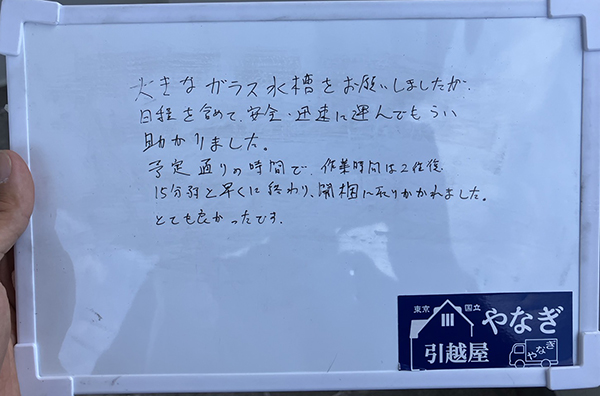 大きなガラス水槽をお願いしましたが、
日程を含めて、安全・迅速に運んでもらい
助かりました。
予定通りの時間で、作業時間は2往復
15分弱と早くに終わり、開梱に取りかかれました。
とても良かったです。
東京 国立
やなぎ
引越屋
やなぎ